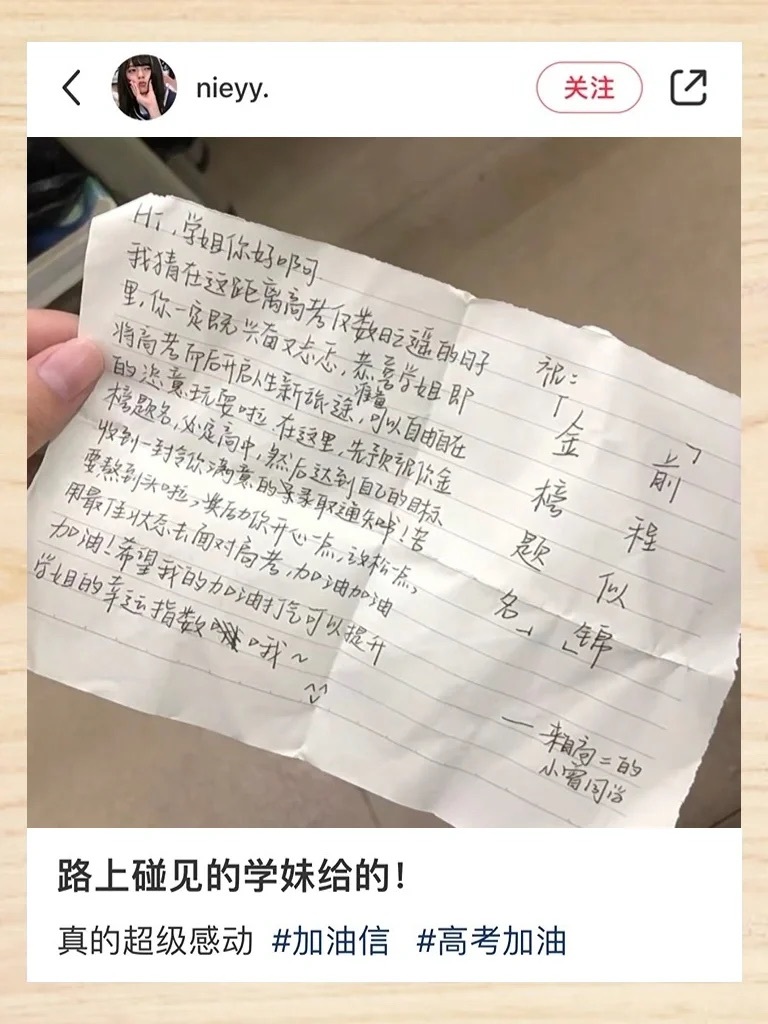 nieyy.
关注
Hi,学姐你好啊
我猜在这距离高考仅数日之遥的日子
里,你一定既兴奋又忐忑,恭喜学姐即
将高考而后开启人生新旅途,可以自由自在
的恣意玩耍啦,在这里,先预祝你金
榜题名,必定高中,然后达到自己的目标
收到一封令你满意的录取通知哦!苦
要熬到头啦,奖励你开心一点,放松一点,
用最佳状态去面对高考,加油加油
加油!希望我的加油打气可以提升
学姐的幸运指数哦~
祝:
「金榜题名」
「前程似锦」
—来自高二的
小宵同学
路上碰见的学妹给的!
真的超级感动 #加油信 #高考加油